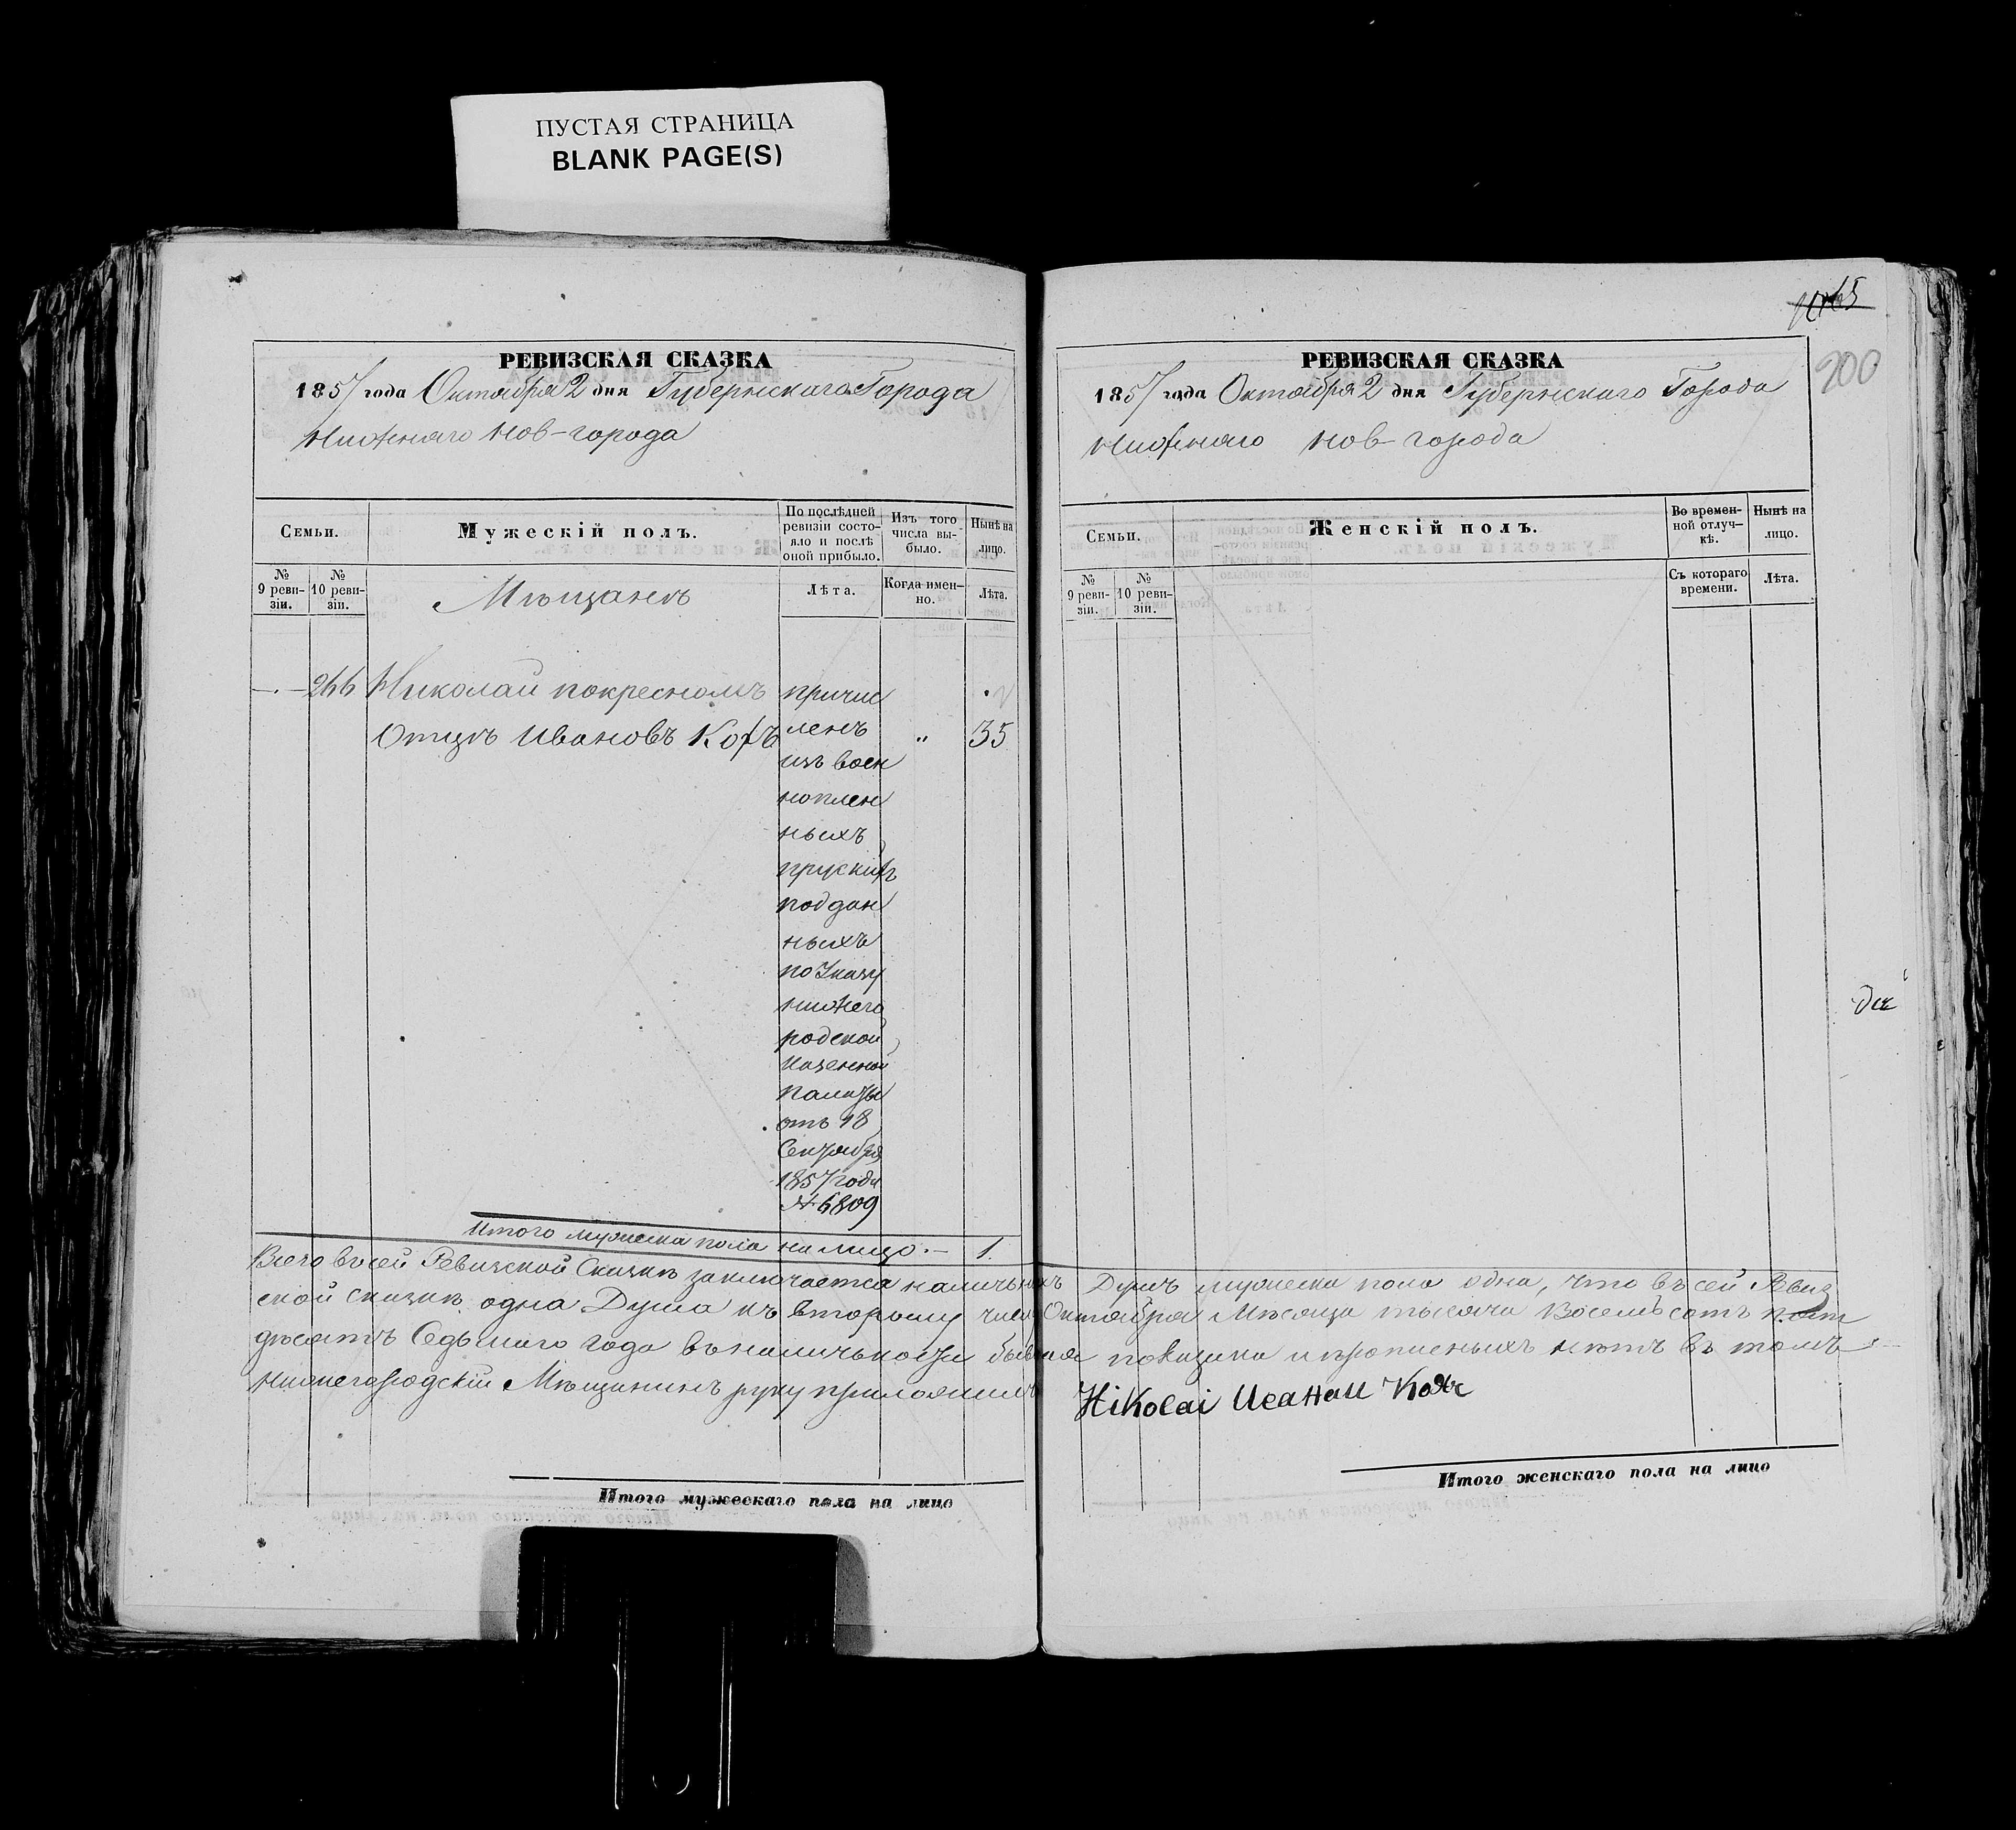 ПУСТАЯ СТРАНИЦА
BLANK PAGE(S)
РЕВИЗСКАЯ СКАЗКА
1857 года Октября 2 дня Губернскаго Города
Нижняго Нов-города
Семьи.
Мужескій полъ.
По послѣдней ревизіи состо-
яло и послѣ
оной прибыло.
Изъ того
числа вы-
было.
Нынѣ на
лицо.
№
9 реви-
зіи.
№
10 реви-
зіи.
Мѣщанъ
Лѣта.
Когда имен-
но.
Лѣта.
266 Николай покресномъ
Отцѣ Ивановъ
" 35
причис
ленъ
изъ воен
ноплен
ныхъ
прускихъ
поддан
ныхъ
по Указу
Нижего
родской
Казенной
Палаты
отъ 18
Сентября
1857 года
№ 6809
Итого мужеска пола на лицо. — 1.
РЕВИЗСКАЯ СКАЗКА
1857 года Октября 2 дня Губернскаго Города
Нижняго Нов-города
200
Семьи.
Женскій полъ.
Во времен-
ной отлуч-
кѣ.
Нынѣ на
лицо.
№
9 реви-
зіи.
№
10 реви-
зіи.
Съ котораго
времени.
Лѣта.
Всего въ сей Ревизской Сказкѣ заключается наличныхъ Душъ мужеска пола одна, что въ сей Ревиз
ской сказкѣ одна Душа къ второму числу Октября Мѣсяца тысяча Восемьсотъ пят
десятъ Седьмаго года въ наличности бывшая показана и прописныхъ нѣтъ въ томъ
Нижегородскій Мѣщанинъ руку приложилъ Нikolai
Итого мужескаго пола на лицо
Итого женскаго пола на лицо